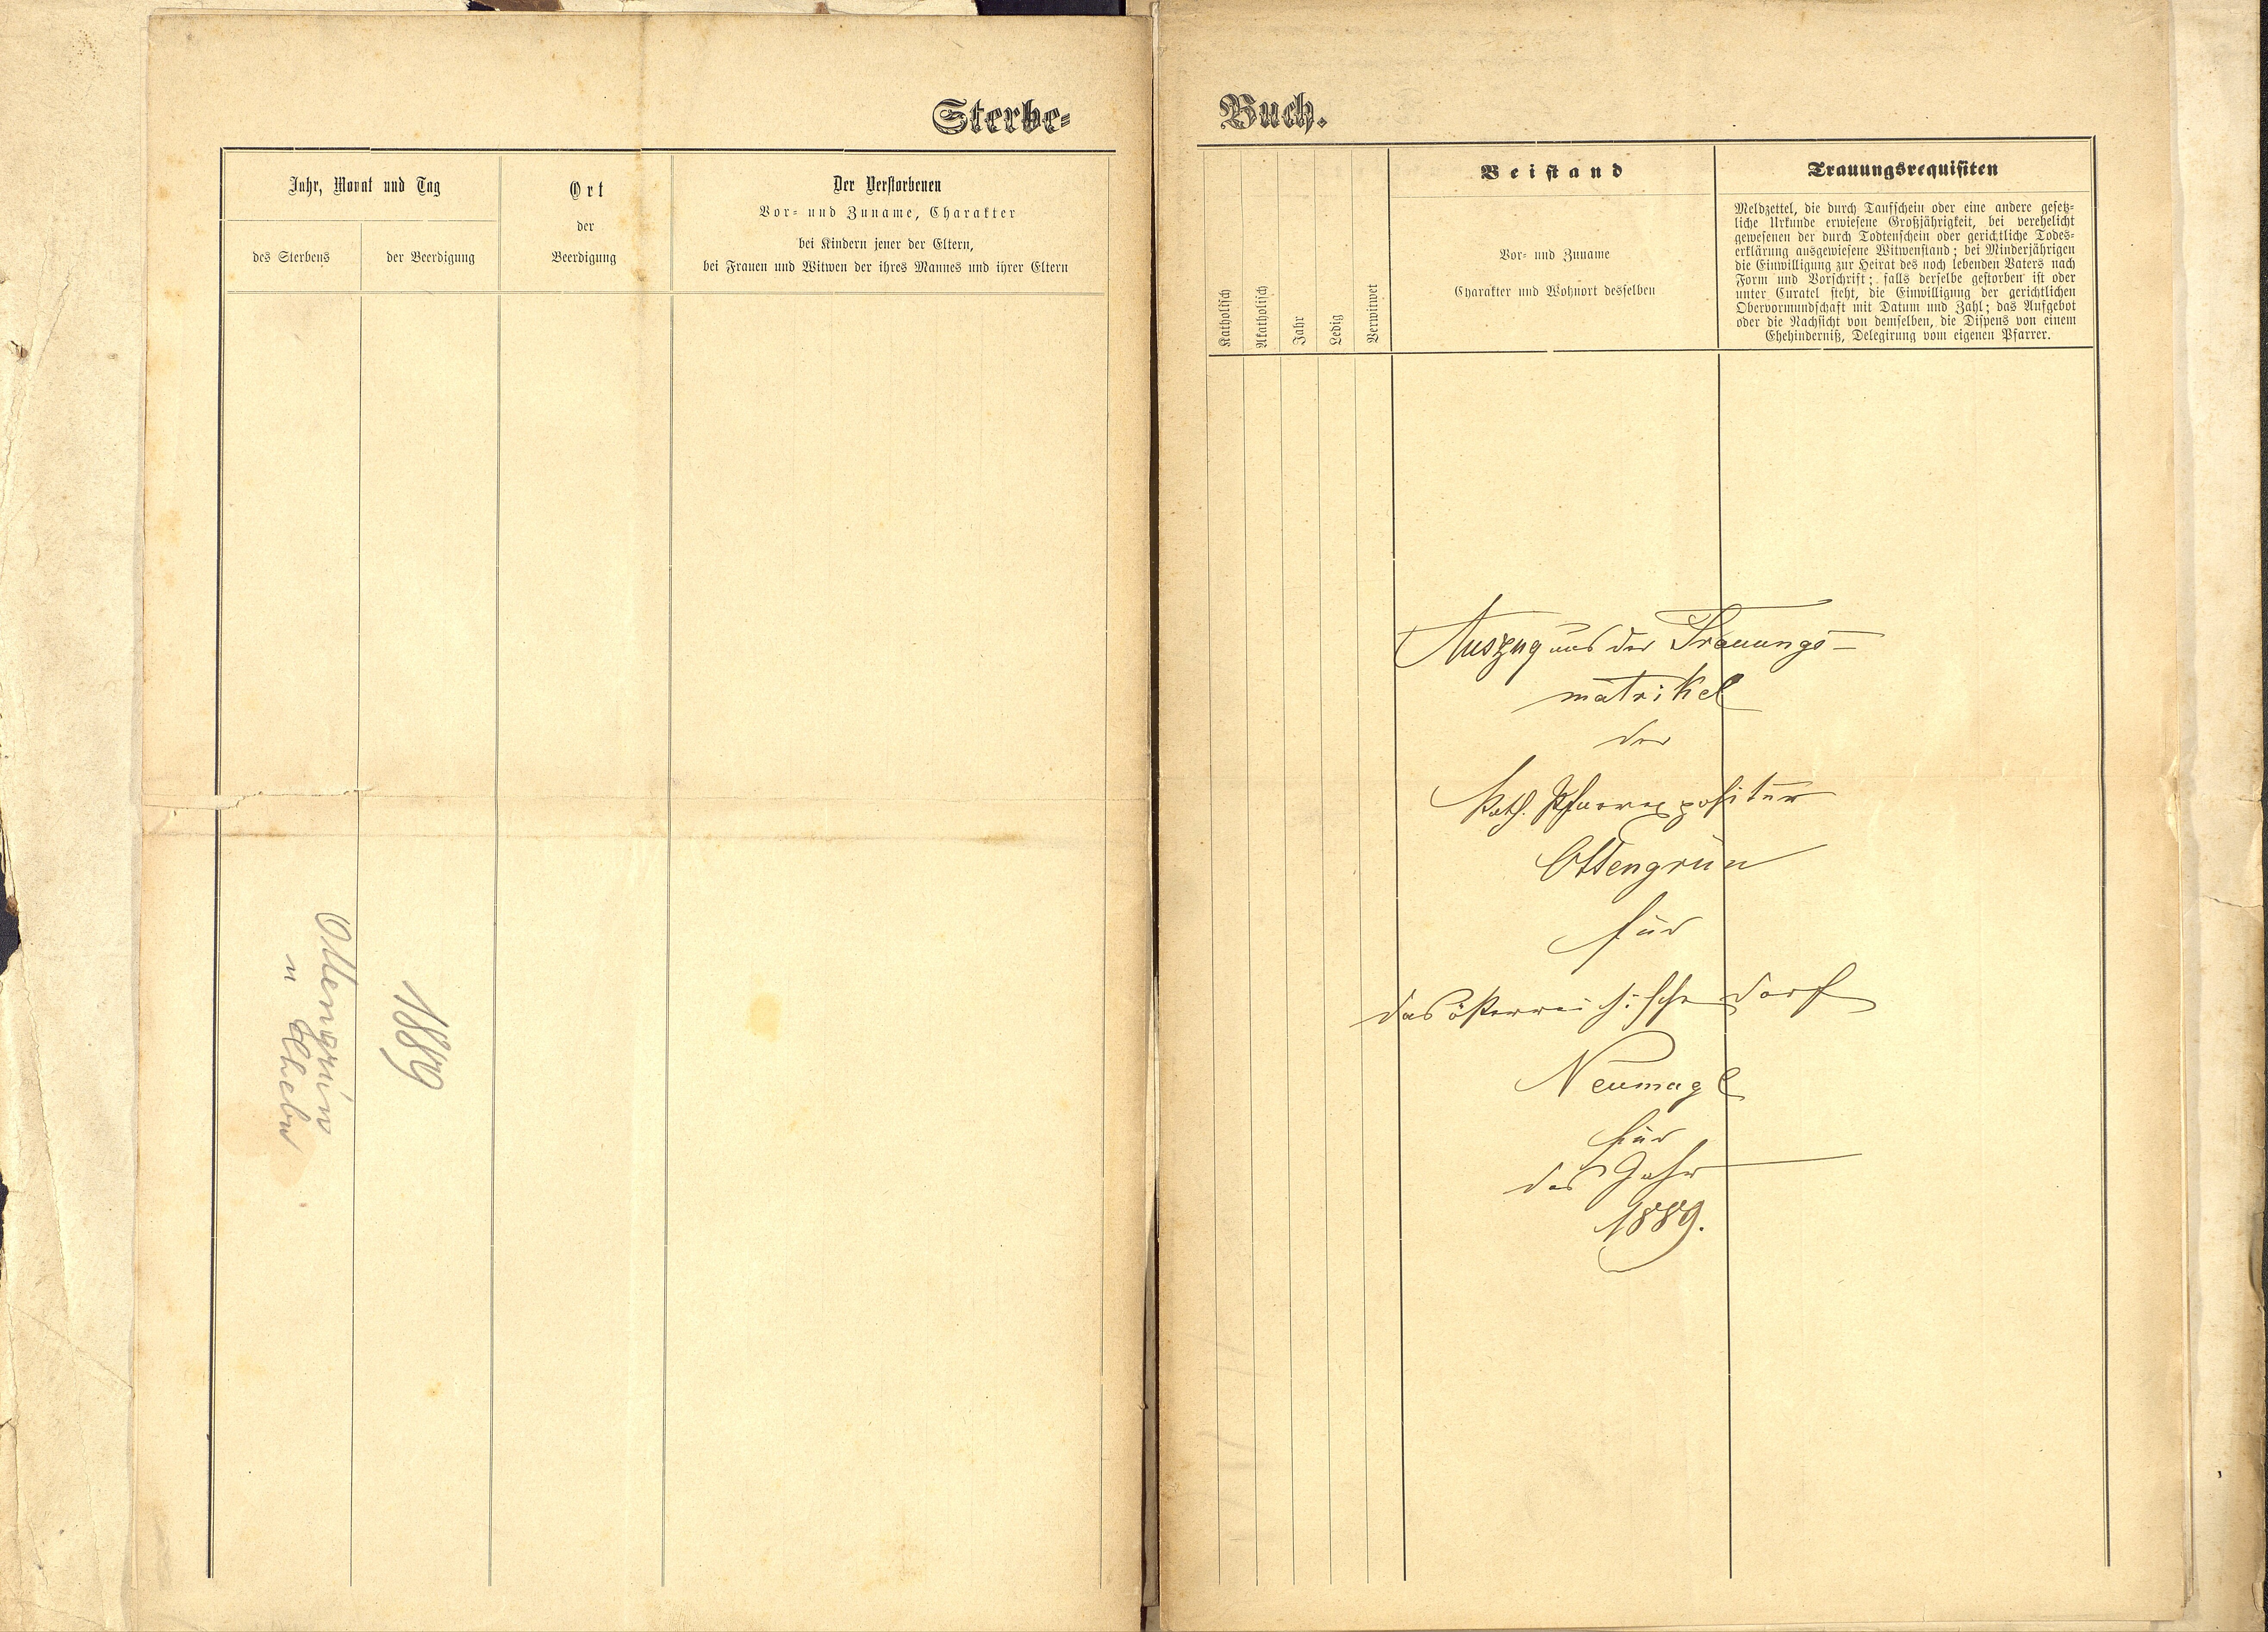 Sterbe-
Jahr, Monat und Tag
des Sterbens
der Beerdigung
Ort
der
Beerdigung
Der Verstorbenen
Vor- und Zuname, Charakter
bei Kindern jener der Eltern,
bei Frauen und Witwen der ihres Mannes und ihrer Eltern
1889
Ottengrün
u Chebu
Buch.
Katholisch
Akatholisch
Jahr
Ledig
Verwitwet
Beistand
Vor- und Zuname
Charakter und Wohnort desselben
Trauungsrequisiten
Meldzettel, die durch Taufschein oder eine andere gesetz-
liche Urkunde erwiesene Großjährigkeit, bei verehelicht
gewesenen der durch Todtenschein oder gerichtliche Todes-
erklärung ausgewiesene Witwenstand; bei Minderjährigen
die Einwilligung zur Heirat des noch lebenden Vaters nach
Form und Vorschrift; falls derselbe gestorben ist oder
unter Curatel steht, die Einwilligung der gerichtlichen
Obervormundschaft mit Datum und Zahl; das Aufgebot
oder die Nachsicht von demselben, die Dispens von einem
Ehehinderniß, Delegirung vom eigenen Pfarrer.
Auszug aus der Trauungs-
matrikel
der
Kath. Pfarrexpositur
Ottengrün
für
das österreichische Dorf
Neumagl
für
das Jahr
1889.